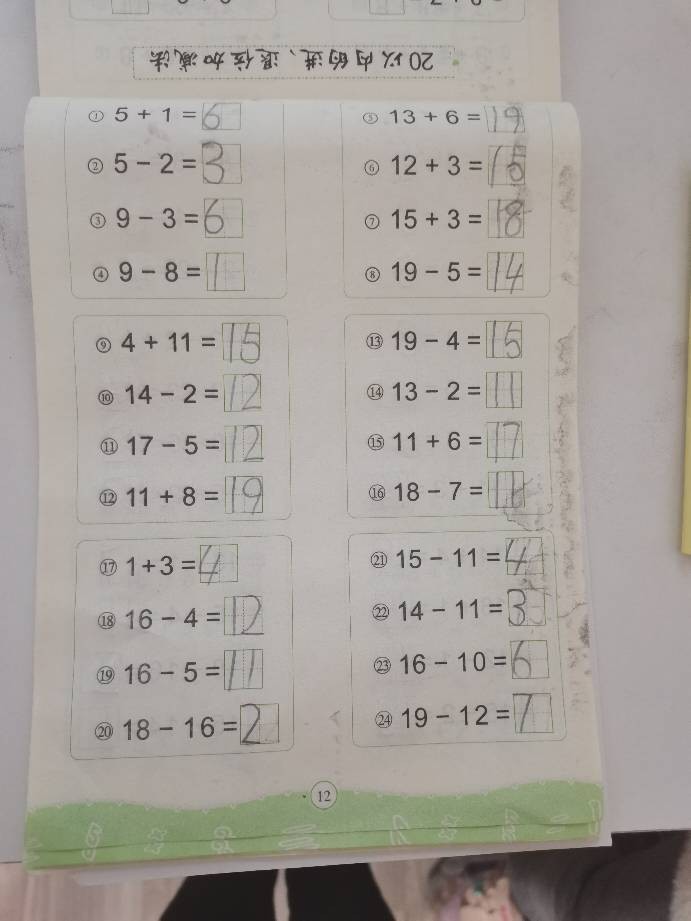 20以内的进、退位加减法
① 5 + 1 = 6
② 5 - 2 = 3
③ 9 - 3 = 6
④ 9 - 8 = 1
⑤ 13 + 6 = 19
⑥ 12 + 3 = 15
⑦ 15 + 3 = 18
⑧ 19 - 5 = 14
⑨ 4 + 11 = 15
⑩ 14 - 2 = 12
⑪ 17 - 5 = 12
⑫ 11 + 8 = 19
⑬ 19 - 4 = 15
⑭ 13 - 2 = 11
⑮ 11 + 6 = 17
⑯ 18 - 7 = 11
⑰ 1 + 3 = 4
⑱ 16 - 4 = 12
⑲ 16 - 5 = 11
⑳ 18 - 16 = 2
㉑ 15 - 11 = 4
㉒ 14 - 11 = 3
㉓ 16 - 10 = 6
㉔ 19 - 12 = 7
12